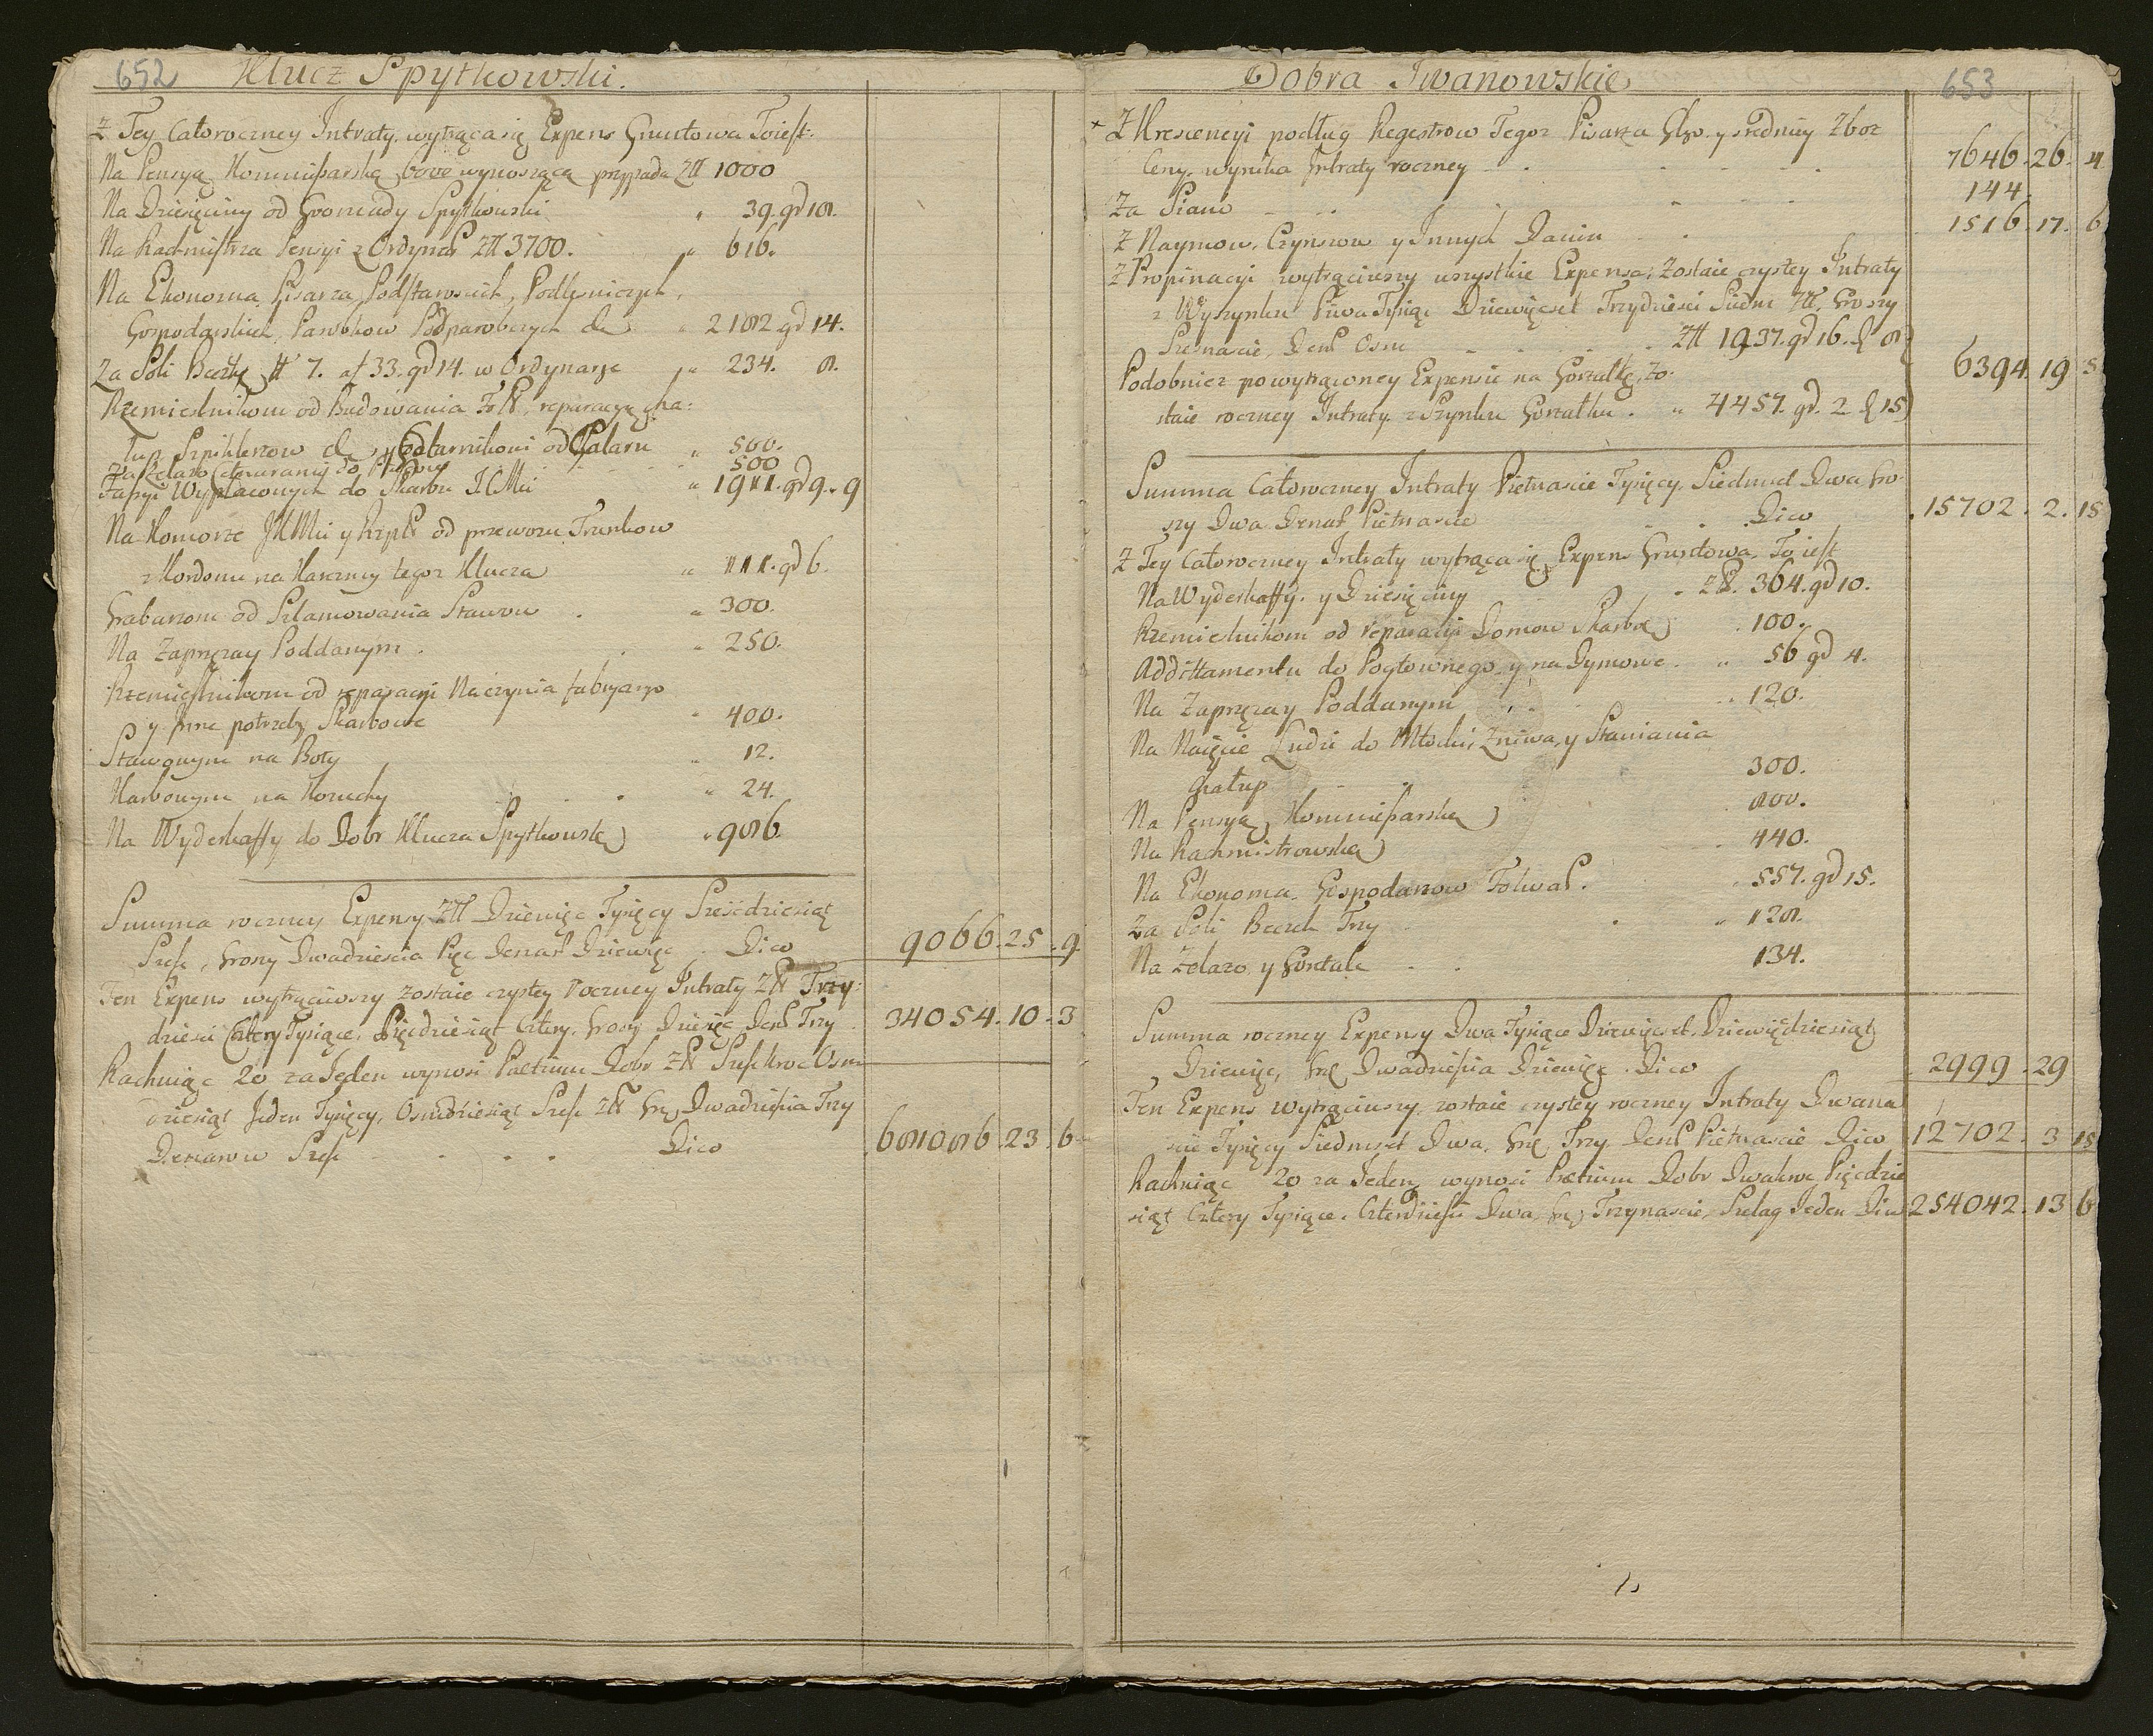 652 Klucz Spytkowski.
Z Tey Całoroczney Intraty wytrąca się Expens Gruntowa Toiest:
Na Pensyą Kommissarską 6000 wynoszącą przypada Złł 1000
Na Dziesięciny od Gromady Spytkowski „ 39. gr 18.
Na Rachmistrza Pensyi z Ordynar Złł 3700. „ 616.
Na Ekonoma, Pisarza, Podstarościch, Podleśniczych,
Gospodarskich, Parobkow Podparobczych &c „ 2182 gr 14.
Za Soli Beczkę N 7. at 33. gr 14. w Ordynarye „ 234. 8.
Rzemieślnikom od Budowania Folw. reparacyi cha:
łup, Szpiklerzow &c y od Pałacu „ 560.
Za Żelazo do Pługow 500
Wypłaconych do Skarbu JKMci „ 1911. gr 9. 9
Na Komorze JKMci y Rzpltt od przewozu Trunkow
z Kordonu na Karczmy tegoz Klucza „ 111. gr 6.
Grabarzom od Szlamowania Stawow . „ 300.
Na Zaprzęzay Poddanym . „ 250.
Rzemieślnikom od reparacyi Naczynia fabrycznego
y Inne potrzeby Skarbowe „ 400.
Stawownym na Boty „ 12.
Karbowym na Kozuchy „ 24.
Na Wyderkaffy do Dobr Klucza Spytkowską „ 986.
Summa roczney Expensy Złł Dziewięc Tysięcy Sześcdziesiąt
Szesc, Groszy Dwadziescia Pięc Denar Dziewięc Dico 9066. 25. 9
Ten Expens wytrąciwszy zostaie czystey roczney Intraty Złł Trzy:
dziesci Cztery Tysiące, Pięcdziesiąt Cztery, Groszy Dziesięc Den Trzy 34054. 10. 3
Rachuiąc 20 za Jeden wynosi Pretium Dobr Złł Szesckroc Osm
dziesiąt Jeden Tysięcy, Osmdziesiąt Szesc Złł Gr Dwadziescia Trzy
Denarow Szesc . . . . Dico 681086. 23. 6
Dobra Iwanowskie 653
+ Z Krescencyi podług Regestrow Tegoz Pisarza y sredniey Zboz
Ceny. wynika Intraty roczney . . . . 7646. 26. 4
Za Siano . . . . 144.
Z Naymow, Czynszow y Innych Danin . . 1516. 17. 6
Z Propinacyi wytrąciwszy wszystkie Expensa; Zostaie czystey Intraty
z Wyszynku Piwa Tysiąc Dziewięcset Trzydziesci Siedm Złł, Groszy
Szesnascie, Den Osm . . . . Złł 1937. gr 16. d 8
Podobniez po wytrąconey Expensie na Gorzałkę, Zo- 6394. 19 5
staie roczney Intraty z Szynku Gorzałki . „ 4457. gr. 2. d 15
Summa Całoroczney Intraty Pietnascie Tysięcy, Siedmset Dwa Gro
szy Dwa Denar Pietnascie . . Dico 15702. 2. 15
Z Tey Całoroczney Intraty wytrąca się Expens Gruntowa, To iest
Na Wyderkaffy. y Dziesięciny „ Zł. 364. gr 10.
Rzemieślnikom od reparacyi Domow Skarbo . 100.
Addittamentu do Pogłownego y na Dymowe . „ 56 gr 4.
Na Zaprzęzay Poddanym . . . 120.
Na Naięcie Ludzi do Młocki, Zniwa, y Stawiania
Chałup . . . 300.
Na Pensyą Kommissarską . 800.
Na Rachmistrowską . 440.
Na Ekonoma, Gospodarzow Folwar. . 557. gr 15.
Za Soli Beczek Trzy . . „ 128.
Na Zelazo y Gontale . . 134.
Summa roczney Expensy Dwa Tysiące Dziewięcset, Dziewięcdziesiąt
Dziewięc, Gr Dwadziescia Dziewięc . Dico 2999. 29
Ten Expens wytrąciwszy, zostaie czystey roczney Intraty Dwana
scie Tysięcy Siedmset Dwa, Gr Trzy Den Pietnascie Dico 12702. 3 15
Rachuiąc 20 za Jeden, wynosi Pretium Dobr Dwakroc Pięcdzie
siąt Cztery Tysiące, Czterdziesci Dwa, Gr Trzynascie, Szeląg Jeden Dico 254042. 13 6